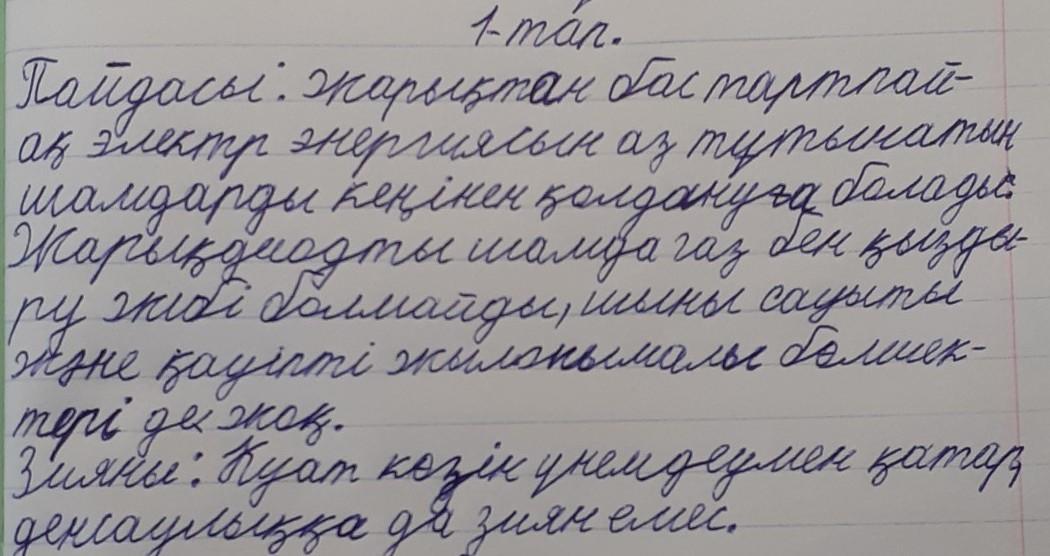 1-топ.
Пайдасы: Жарықтан бас тартпай-
ақ электр энергиясын аз тұтынатын
шамдарды кеңінен қолдануға болады.
Жарықдиодты шамда газ бен қызды-
ру жібі болмайды, шыны сауыты
және қауіпті жылжымалы бөлшек-
тері де жоқ.
Зияны: Қуат көзін үнемдеумен қатар,
денсаулыққа да зиян емес.